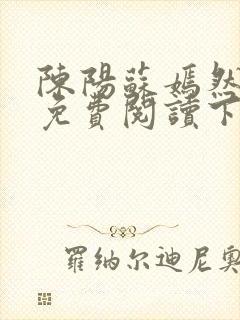 陳陽蘇嫣然
免費閱讀下
羅纳尔迪尼奥